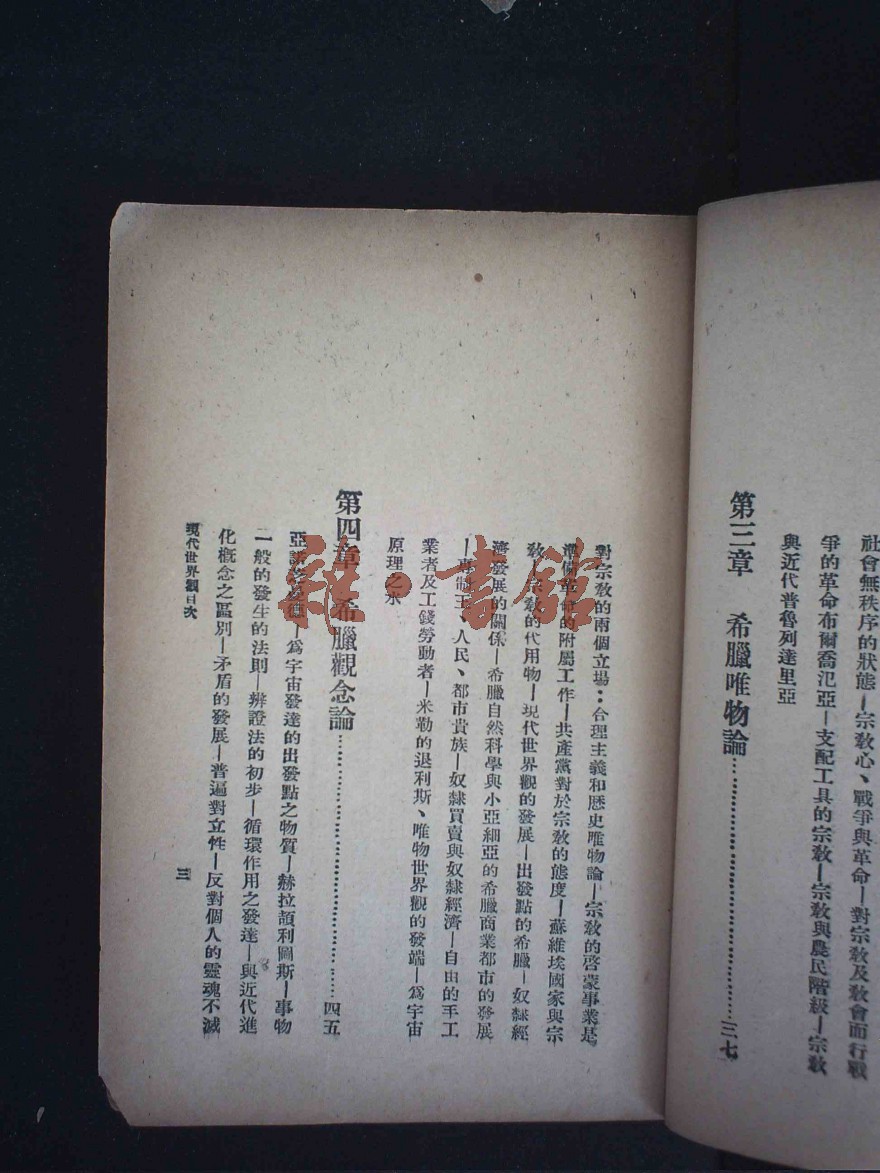 社會無秩序的狀態—宗教心、戰爭與革命—對宗教及教會而行戰
爭的革命布爾喬氾亞—支配工具的宗教—宗教與農民階級—宗教
與近代普魯列達里亞
第三章 希臘唯物論……三七
對宗教的兩個立場：合理主義和歷史唯物論—宗教的啓蒙事業是
準備革命的附屬工作—共產黨對於宗教的態度—蘇維埃國家與宗
教—宗教的代用物—現代世界觀的發展—出發點的希臘—奴隸經
濟發展的關係—希臘自然科學與小亞細亞的希臘商業都市的發展
—專制王、人民、都市貴族—奴隸買賣與奴隸經濟—自由的手工
業者及工錢勞動者—米勒的退利斯、唯物世界觀的發端—爲宇宙
原理之水
第四章 希臘觀念論……四五
亞諾—爲宇宙發達的出發點之物質—赫拉頡利圖斯—事物
一般的發生的法則—辨證法的初步—循環作用之發達—與近代進
化概念之區別—矛盾的發展—普遍對立性—反對個人的靈魂不滅
現代世界觀目次
三
雜·書館